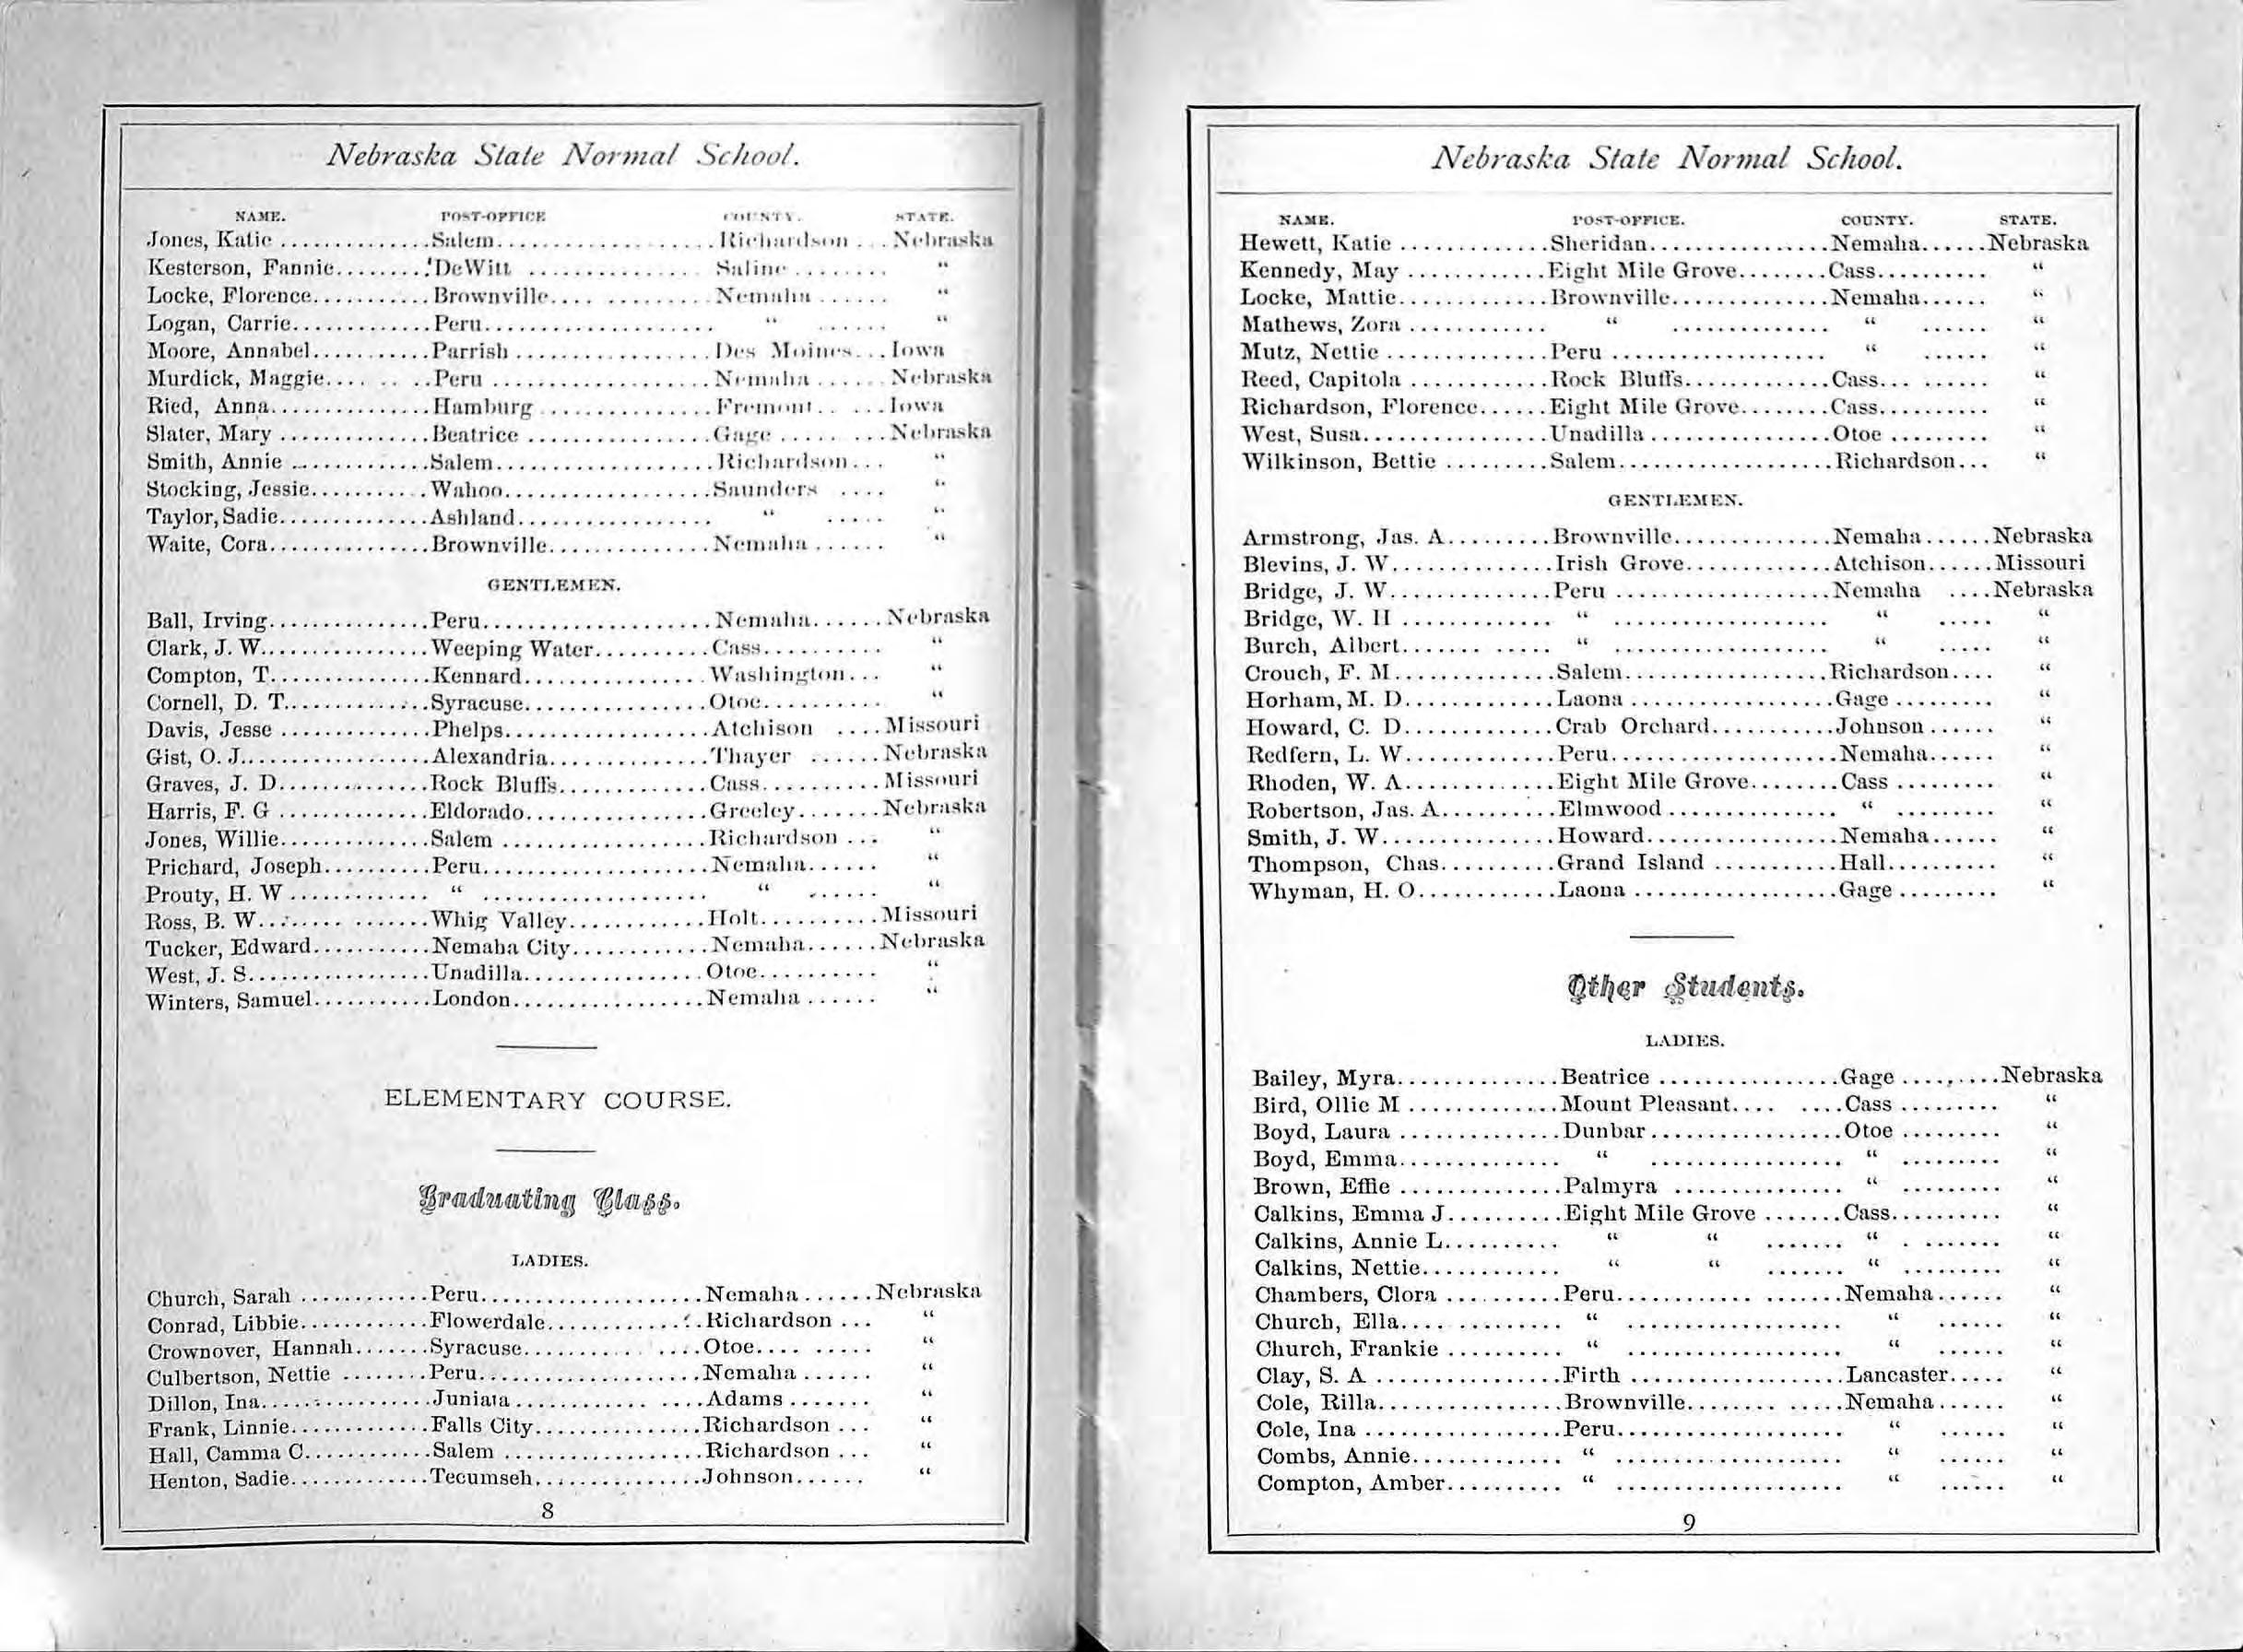 Nebraska State Normal School.
NAME. POST-OFFICE COUNTY. STATE.
Jones, Katie .............. Salem .................... Richardson ... Nebraska
Kesterson, Fannie ........ DeWitt ................ Saline ........ "
Locke, Florence ........... Brownville .... .......... Nemaha ...... "
Logan, Carrie ............. Peru ..................... " ...... "
Moore, Annabel ............ Parrish .................. Des Moines ... Iowa
Murdick, Maggie .... .. .. Peru .................... Nemaha ...... Nebraska
Ried, Anna ............... Hamburg ................ Fremont .. ... Iowa
Slater, Mary .............. Beatrice ................. Gage ..... ... Nebraska
Smith, Annie ............. Salem .................... Richardson ... "
Stocking, Jessie .......... Wahoo ................... Saunders .... "
Taylor, Sadie .............. Ashland .................. " ..... "
Waite, Cora ............... Brownville ............... Nemaha ...... "
GENTLEMEN.
Ball, Irving ............... Peru ..................... Nemaha ...... Nebraska
Clark, J. W. ............... Weeping Water .......... Cass .......... "
Compton, T. .............. Kennard ................. Washington ... "
Cornell, D. T. ............. Syracuse ................. Otoe .......... "
Davis, Jesse .............. Phelps ................... Atchison .... Missouri
Gist, O. J. ................. Alexandria ............... Thayer ...... Nebraska
Graves, J. D. .............. Rock Bluffs .............. Cass .......... Missouri
Harris, F. G .............. Eldorado ................. Greeley ....... Nebraska
Jones, Willie .............. Salem ................... Richardson ... "
Prichard, Joseph .......... Peru ..................... Nemaha ...... "
Prouty, H. W ............. " ..................... " ...... "
Ross, B. W. ..... ....... Whig Valley ............. Holt .......... Missouri
Tucker, Edward ........... Nemaha City ............. Nemaha ...... Nebraska
West, J. S. ................ Unadilla ................. Otoe .......... "
Winters, Samuel ........... London .................. Nemaha ...... "
ELEMENTARY COURSE.
Graduating Class.
LADIES.
Church, Sarah ............ Peru .................... Nemaha ...... Nebraska
Conrad, Libbie ............ Flowerdale ............. Richardson ... "
Crownover, Hannah ....... Syracuse .......... .... Otoe .... ..... "
Culbertson, Nettie ........ Peru .................... Nemaha ...... "
Dillon, Ina ................ Juniata ............ .... Adams ....... "
Frank, Linnie ............. Falls City ............... Richardson ... "
Hall, Camma C. ........... Salem .................. Richardson ... "
Henton, Sadie ............. Tecumseh ............... Johnson ...... "
8
Nebraska State Normal School.
NAME. POST-OFFICE. COUNTY. STATE.
Hewett, Katie ............. Sheridan ................ Nemaha ...... Nebraska
Kennedy, May ............ Eight Mile Grove ........ Cass .......... "
Locke, Mattie ............. Brownville .............. Nemaha ...... "
Mathews, Zora ............ " .............. " ...... "
Mutz, Nettie .............. Peru ................... " ...... "
Reed, Capitola ............ Rock Bluffs ............. Cass ... ...... "
Richardson, Florence ...... Eight Mile Grove ........ Cass .......... "
West, Susa ................ Unadilla ................ Otoe ......... "
Wilkinson, Bettie ......... Salem ................... Richardson ... "
GENTLEMEN.
Armstrong, Jas. A. ........ Brownville .............. Nemaha ...... Nebraska
Blevins, J. W. ............. Irish Grove ............. Atchison ...... Missouri
Bridge, J. W. .............. Peru ................... Nemaha .... Nebraska
Bridge, W. H ............. " ................... " ..... "
Burch, Albert ....... ..... " ................... " ..... "
Crouch, F. M. ............. Salem .................. Richardson .... "
Horham, M. D. ............. Laona .................. Gage ......... "
Howard, C. D. ............. Crab Orchard ........... Johnson ...... "
Redfern, L. W. ............. Peru .................... Nemaha ...... "
Rhoden, W. A. ............. Eight Mile Grove ........ Cass ......... "
Robertson, Jas. A. ......... Elmwood ............... " ......... "
Smith, J. W. ............... Howard ................. Nemaha ...... "
Thompson, Chas. .......... Grand Island ........... Hall .......... "
Whyman, H. O. ............ Laona .................. Gage ......... "
Other Students.
LADIES.
Bailey, Myra .............. Beatrice ................ Gage ......... Nebraska
Bird, Ollie M ............. Mount Pleasant .... .... Cass ......... "
Boyd, Laura .............. Dunbar ................. Otoe ......... "
Boyd, Emma .............. " ................. " ......... "
Brown, Effie .............. Palmyra ............... " ......... "
Calkins, Emma J. ......... Eight Mile Grove ....... Cass .......... "
Calkins, Annie L. ......... " " ....... " . ....... "
Calkins, Nettie ............ " " ....... " ......... "
Chambers, Clora .......... Peru ............ ....... Nemaha ...... "
Church, Ella .... ......... " ................... " ...... "
Church, Frankie .......... " ................... " ...... "
Clay, S. A ................ Firth ................... Lancaster ..... "
Cole, Rilla ................ Brownville ........ ..... Nemaha ...... "
Cole, Ina ................. Peru .................... " ...... "
Combs, Annie ............. " .................... " ...... "
Compton, Amber .......... " .................... " ...... "
9